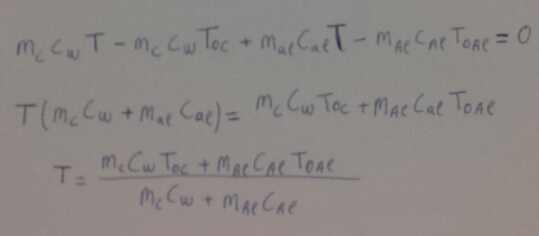 m_c C_w T - m_c C_w T_oc + m_al C_al T - m_Al C_Al T_OAl = 0
T(m_c C_w + m_al C_al) = m_c C_w T_oc + m_Al C_al T_OAl
T = \frac{m_c C_w T_oc + m_Al C_Al T_OAl}{m_c C_w + m_Al C_Al}